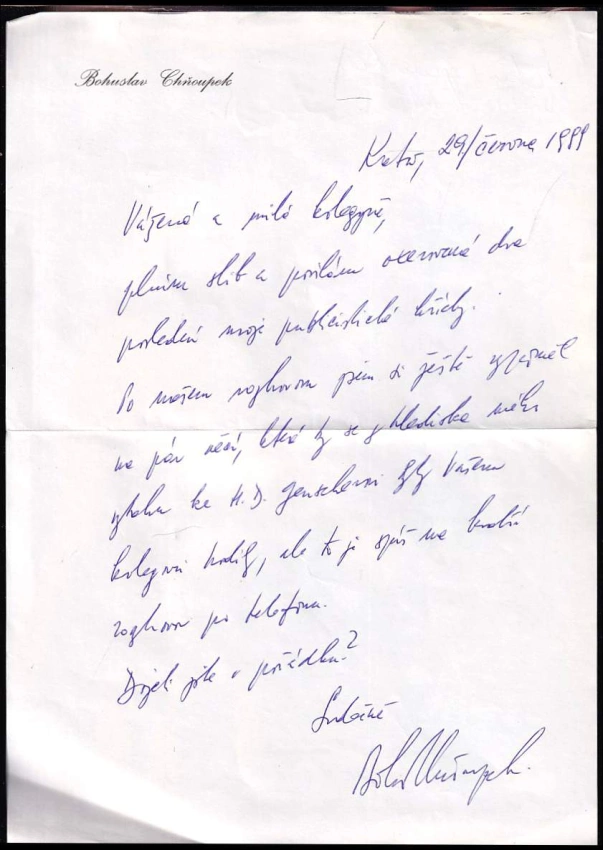 Bohuslav Chňoupek
29/června 1999
Vážená a milá kolegyně,
plním slib a posílám dva
poslední moje publicistické knihy.
Po našem rozhovoru jsem si ještě vzpomněl
na pár věcí, které by se z hlediska mého
vztahu ke H. D. Genscherovi Vašemu
kolegovi hodily, ale to je spíš na kratší
rozhovor po telefonu.
Dojeli jste v pořádku?
Srdečně